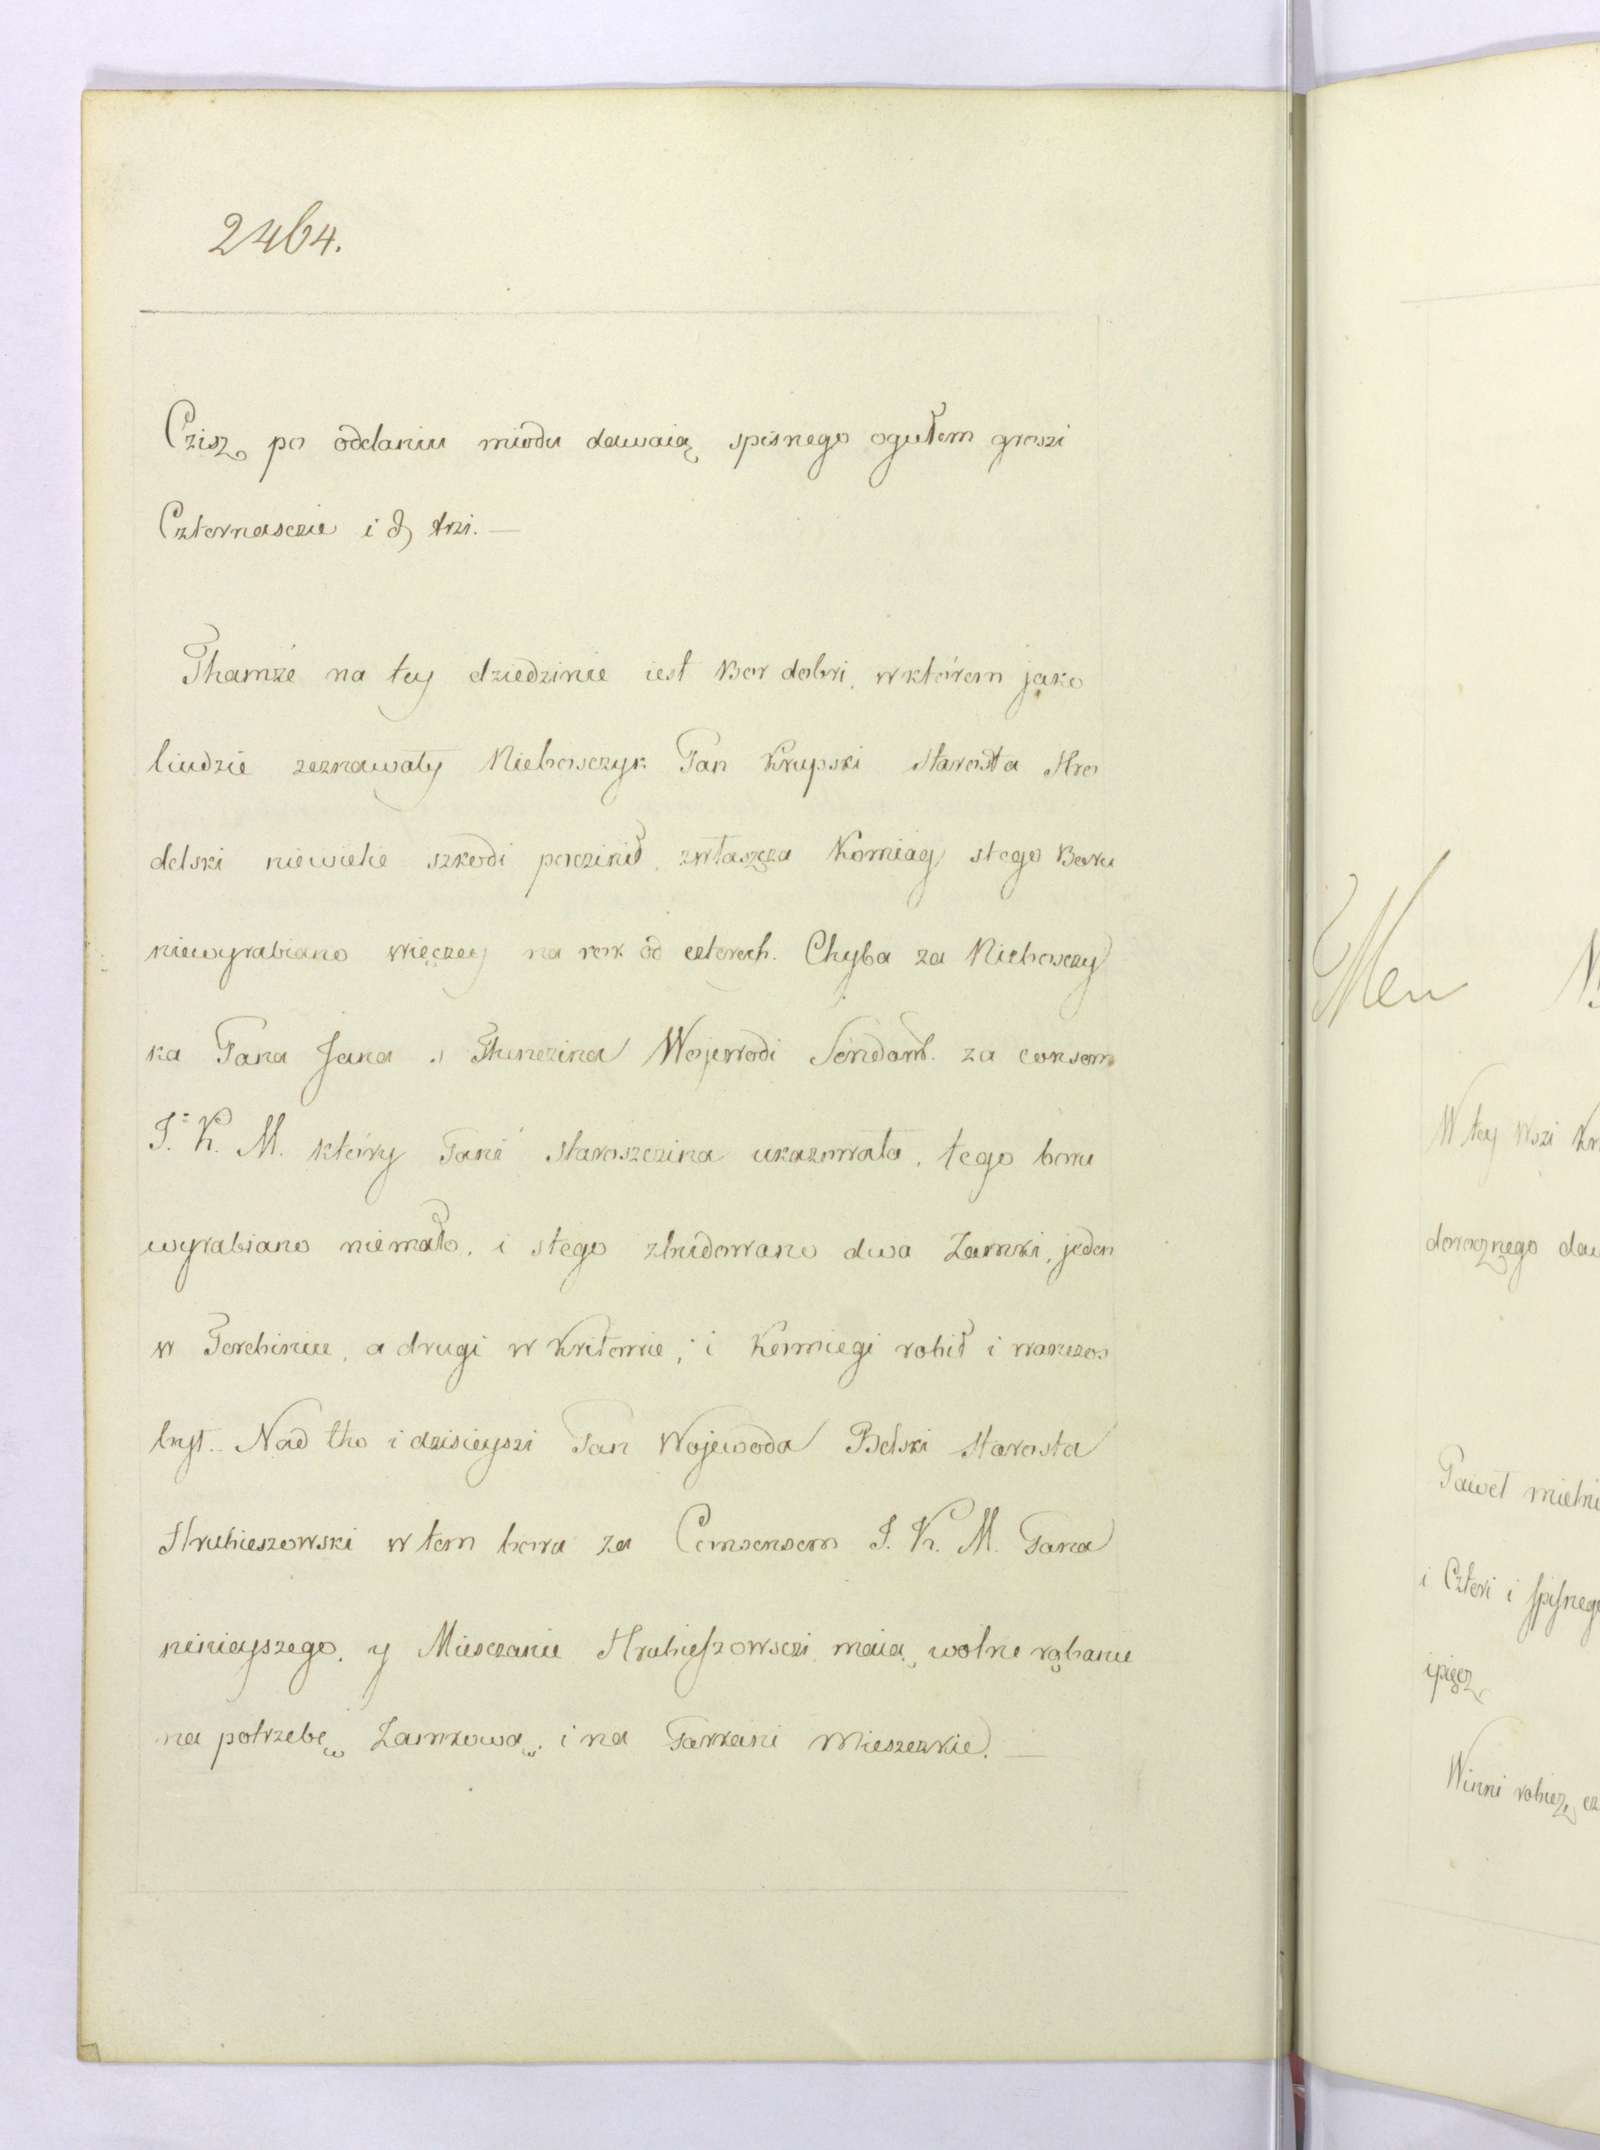 2464.
Czisz po oddaniu miodu dawaią spisnego ogułem groszi
Czternasczie i ₰ trzi. —
Thamże na tey dziedzinie iest Bor dobri, w którem jako
liudzie zeznawały Nieboszczyk Pan Krupski Starosta Hro
delski niewielie szkodi poczinił, zwłaszcza Komiag stego Boru
niewyrabiano więczey na rok od czterech. Chyba za Niebosczy
ka Pana Jana s Thenczina Wojewodi Sendomi. za consem
J. K. M. który Panie Staroszczina ukazowała, tego boru
wyrabiano niemało, i stego zbudowano dwa Zamki, jeden
w Torchiniu, a drugi w Kriłowie, i Komiegi robił i wanczos
był. Nad tho i dzisieyszi Pan Wojewoda Belski Starosta
Hrubieszowski w tem boru za Consensem J. K. M. Pana
ninieyszego, y Miesczanie Hrubieszowsczi maią wolne rąbanie
na potrzebę Zamkową, i na Parkani Mieszczkie. —
Men
W tey wszi
dorocznego
Paweł
i Czteri i spisnego
ipięcz
Winni robicz